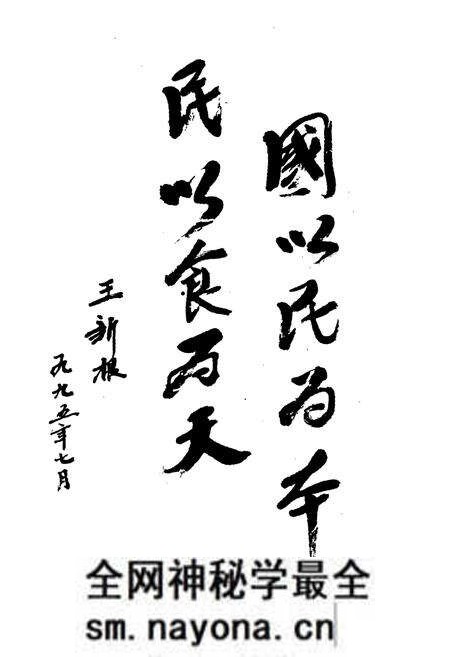 國以民为本
民以食为天
王新根
一九九五年七月
全网神秘学最全
sm.nayona.cn